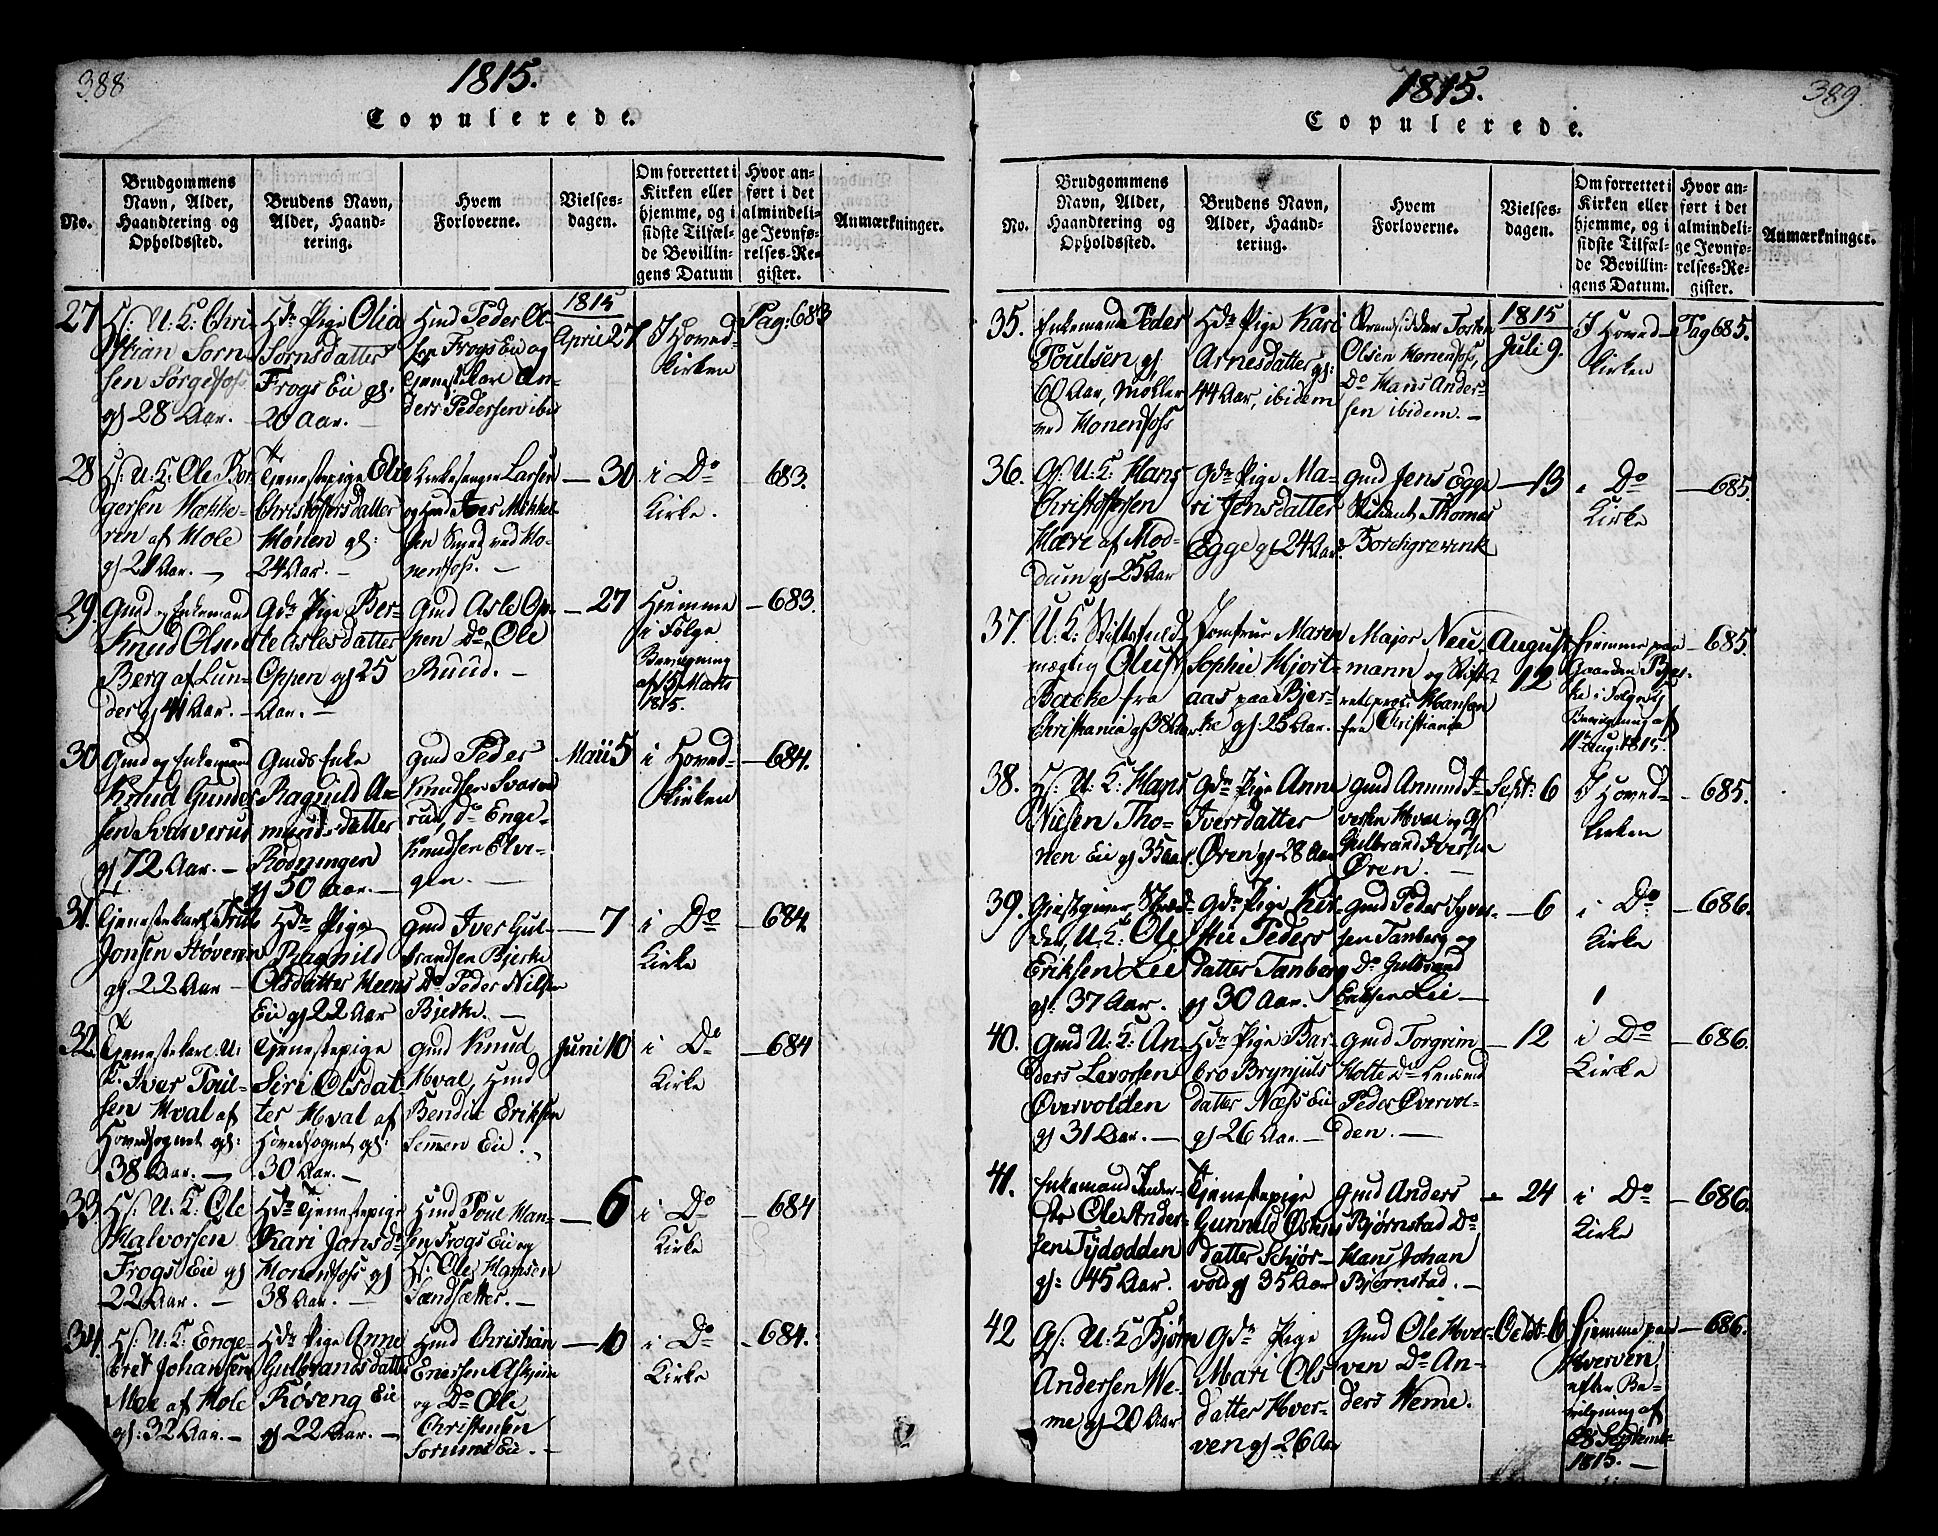 388
1815.
Copulerede.
No.
Brudgommens
Navn, Alder,
Haandtering og
Opholdssted.
Brudens Navn,
Alder, Haand-
tering.
Hvem
Forloverne.
Vielses-
dagen.
Om forrettet i
Kirken eller
hjemme, og i
sidste Tilfæl-
de Bevillin-
gens Datum
Hvor an-
ført i det
almindeli-
ge Jevnfø-
relses-Re-
gister.
Anmærkninger.
27
Chri-
stian Sorn-
sen
gl 28 Aar.
Pige Olia
Sornsdatter
Frogs Eie gl:
20 Aar.
Hmd Peder Ol-
sen Frogs Eie og
Tjenestekarl An-
ders Pedersen ibid
1815
April 27
I Hoved-
kirken
Pag: 683
28
U: K: Ole Bor-
gersen Hække-
rin af Hole
gl 21 Aar.
Tjenestepige Elie
Christoffersdatter
Hønen gl:
24 Aar.
Kirkesanger Larsen
og Hmd Iver Mikkel-
sen Smed ved Ho-
nenfoss.
— 30
i Do
Kirke.
683.
29.
Gmd og Enkemand
Knud Olsen
Berg af Lun-
der gl 41 Aar.
Gdr Pige Ber-
te Aslesdatter
Oppen gl 25
Aar.
Gmd Asle Op-
pen Do Ole
Ruud.
— 27
Hjemme
i Følge
Bevilgning
af 15 Marts
1815.
— 683.
30
Gmd og Enkemand
Knud Gunder-
sen Svarverud
gl 72 Aar.
Gmds Enke
Ragnild A-
mundsdatter
Rodningen
gl 50 Aar.
Gmd Peder
Knudsen Svarve-
rud, Do Enge-
Knudsen Elvi-
gen.
Maii 5
i Hoved-
kirken
— 684.
31.
Tjenestekarl Truls
Jonsen Støveren
gl 22 Aar
Pige
Ragnild
Olsdatter Heens
Eie gl 22 Aar
Gmd Iver Gul-
brandsen Bjerke
Do Peder Nilsen
Bjerke.
— 7
i Do
Kirke
— 684
32.
Tjenestekarl U:
K: Iver Poul-
sen Hval af
Hovedsognet gl:
38 Aar.
Tjenestepige
Siri Olsdat-
ter Hval af
Hovedsognet gl:
30 Aar.
Gmd Knud
Hval, Hmd
Bendic Eriksen
Semmen Eie.
Juni 10
i Do
Kirke
— 684
33.
U: K: Ole
Halvorsen
Frogs Eie gl
22 Aar.
Tjenestepige
Kari Jonsd:
Honenfoss gl
38 Aar.
Hmd Poul Han-
sen Frogs Eie og
Ole Hansen
Sandsætter.
— 6
i Do
Kirke
— 684
34.
U: K: Enge-
bret Johansen
Moe af Hole
gl: 32 Aar.
Pige Anne
Gulbrandsdatter
Røseng Eie
gl 22 Aar.
Hmd Christian
Enersen Askjum
og Do Ole
Christensen
Sorums Eie.
— 10
i Do
Kirke
— 684.
1815.
389
Copulerede.
No.
Brudgommens
Navn, Alder,
Haandtering og
Opholdssted.
Brudens Navn,
Alder, Haand-
tering.
Hvem
Forloverne.
Vielses-
dagen.
Om forrettet i
Kirken eller
hjemme, og i
sidste Tilfæl-
de Bevillin-
gens Datum.
Hvor an-
ført i det
almindeli-
ge Jevnfø-
relses-Re-
gister.
Anmærkninger.
35.
Enkemand Peder
Poulsen gl
60 Aar, Møller
ved Honenfoss
Pige Kari
Arnesdatter gl:
44 Aar, ibidem
Strandsidder Torsten
Olsen Honenfoss,
Do Hans Ander-
sen ibidem.
1815
Juli 9.
I Hoved-
kirken
Pag 685.
36.
U: K: Hans
Christoffersen
Hære af Mod-
dum gl 25 Aar
Gdr Pige Ma-
ri Jensdatter
Egge gl 24 Aar
Gmd Jens Egge
Thomas
Bordtgrevink
— 13
i Do
Kirke
— 685.
37.
U: K:
mægtig Oluf
Backe fra
Christiania gl 38 Aar
Jomfrue Maren
Sophie Hjort-
aas paa Bjer-
ke gl: 25 Aar.
Major Neu-
mann og Stifts
Hansen
fra Christiania
August
12
Hjemme paa
Gaarden Bjer-
ke i Følge
Bevilgning af
11te Aug: 1815.
— 685.
38.
U: K: Hans
Nielsen Tho-
nen Eie gl 35 Aar.
Gdr Pige Anne
Iversdatter
Øren gl 28 Aar
Gmd Amund I-
versen Hval og
Gulbrand Iversen
Øren.
Sept: 6
I Hoved-
kirken
— 685.
39.
Gjestgiver
U: K: Ole
Eriksen Lie
gl: 37 Aar.
Gdr Pige Kir-
stie Peders
datter Tanberg
gl 30 Aar.
Gmd Peder Syver-
sen Tanberg og
Do Gulbrand
Eriksen Lie
— 6
i Do
Kirke
— 686.
40.
Gmd U: K: An-
ders Levorsen
Øvervolden
gl 31 Aar.
Pige Bar-
bro Brynjuls
datter Næss Eie
gl 26 Aar.
Gmd Torgrim
Holte Do Lensmd
Peder Øvervol-
den.
— 12
i Do
Kirke
— 686.
41.
Enkemand
Ole Ander-
sen Tydodden
gl: 45 Aar.
Tjenestepige
Gunnild Osten
datter Schjør-
vold gl 35 Aar
Gmd Anders
Bjørnstad Do
Hans Johan
Bjørnstad.
24
i Do
Kirke
— 686.
42
U: K: Bjørn
Andersen We-
me gl 20 Aar
Gdr Pige
Mari Ols
datter Hver-
ven gl 26 Aar
Gmd Ole Hver-
ven Do An-
ders Weme.
Octbr 6
Hjemme paa
Hverven
efter Be-
vilgning af
28 Septembr
1815.
— 686.